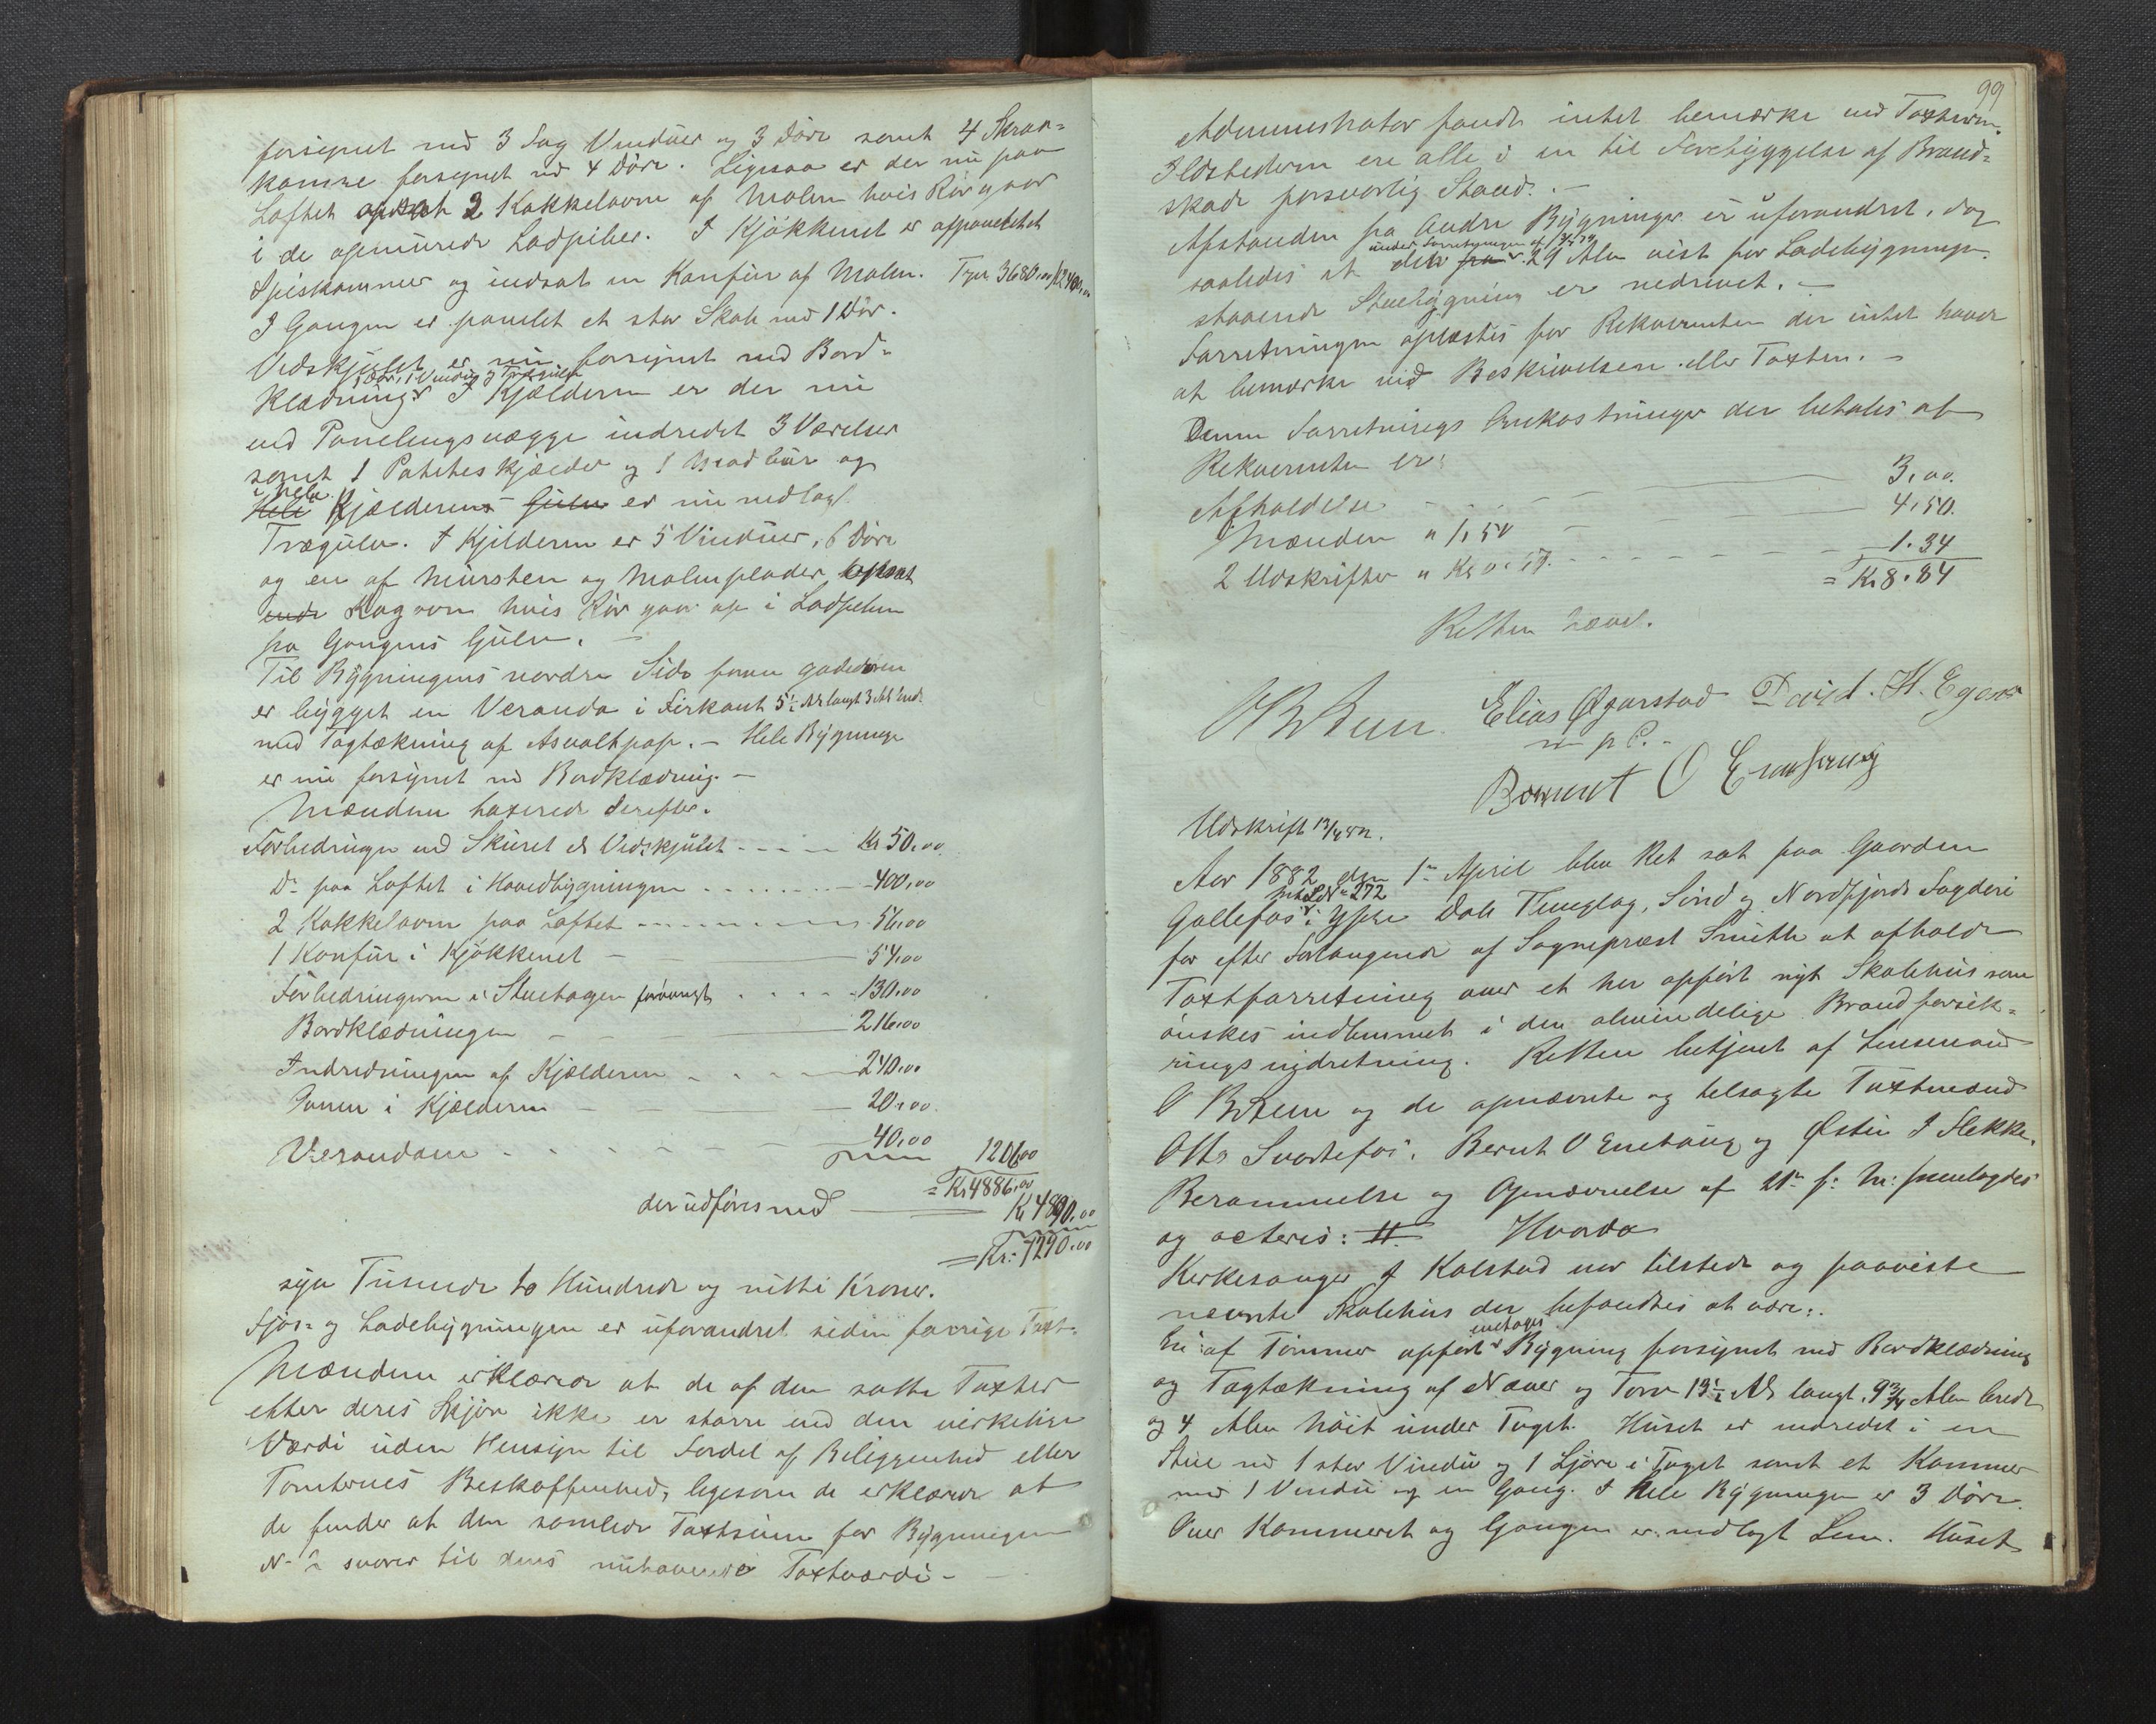 forsynet med 3 Fag Vinduer og 3 Döre samt 4 Skran=
kamre forsynet md 4 Döre. Ligesaa er der nu paa
Loftet opsat 2 Kakkelovne af Malm hvis Rör gaar
i de opmurede Ladpiber. I Kjökkenet er afpanelet et
Spiskammer og indsat en Komfur af Malm. Fr. 3680,00 K 2400,00
I Gangen er panelet et stor Skab med 1 Dör.
Vedskjulet er nu forsynet med Bord=
1 Dör, 1 Vindu og Trægulv
klædning. I Kjælderen er der nu
med Panelingsvægge indredet 3 Værelser
samt 1 Potetes kjælder og 1 Madbur og
i hele
Hele Kjælderens Gulv er nu nedlagt
Trægulv. I Kjelderen er 5 Vinduer, 6 Döre
og en af Mursten og Malmplader opsat
Kogovn hvis Rör gaar op i Ladpiben
fra Gangens Gulv. —
Til Bygningens nordre Side foran gadedören
er bygget en Veranda i Firkant 5½ Al langt 3 Al bred
med Tagtækning af Asvaltpap. — Hele Bygninge
er nu forsynet md Bordklædning. —
Mændene taxerede derefter.
Forbedringen ved Skuret el Vedskjulet - - - - Kr 50,00
Do paa Loftet i Hovedbygningen . . . . . . . 400,00
2 Kakkelovne paa Loftet - - - - - 56,00
1 Komfur i Kjökkenet — 54,00
Forbedringerne i Stuetagen forövrigt . . . . 130,00
Bordklædningen — 216,00
Indredningen af Kjælderen - - - 240,00
Ovnen i Kjælderen — 20,00
Verandaen . . . . . 40,00 1206,00
= Kr 4886,00
der udföres med — Kr 4890,00
= Kr. 7290,00
syv Tusende to Hundrede og nitti Kroner.
Fjös= og Ladebygningen er uforandret siden forrige Taxt.
Mændene erklærer at de af dem satte Taxter
efter deres Skjön ikke er större end den virkelige
Værdi uden Hensyn til Fordel af Beliggenhed eller
Tomternes Beskaffenhed, ligesom de erklærer at
de finder at den samlede Taxtsum for Bygningen
No 2 svarer til dens nuhavende Taxtværdi —
99
Administrator fandt intet bemærke ved Taxterne.
Ildstederne ere alle i en til Forebyggelse af Brand=
skade forsvarlig Stand. —
Afstanden fra andre Bygninger er uforandret, dog
under Forretningen af
saaledes at den fra 29 Alen vist for Ladebygningen
staaende Stuebygning er nedrevet. —
Forretningen oplæstes for Rekvirenten der intet havde
at bemærke ved Beskrivelsen eller Taxten. —
Denne Forretnings Omkostninger der betales af
Rekvirenten er:
Afholdelse — 3,00.
3 Mænden a 1,50 — 4,50.
2 Udskrifter a Kr 0.67. - - - - - 1.34
= Kr 8.84
Retten hævet.
Elias Øgarstad David. H. Egens
m p P. -
Bernt O Enehaug
Udskrift 13/4 82.
Aar 1882 den 1ste April blev Ret sat paa Gaarden
Mtr LNo 272
Gullefos i Ytre Dale Thinglag, Sönd og Nordfjords Fogderi
for efter Forlangende af Sognepræst Smith at afholde
Taxtforretning over et her opfört nyt Skolehus som
önskes indlemmet i den almindelige Brandforsik=
ringsindretning. Retten betjent af Lensmand
O Botnen og de opnævnte og tilsagte Taxtmænd
Otto Svartefos, Bernt O Enehaug og Östen I Flekke.
Berammelse og Opnævnelse af 21de f. M: fremlagdes
og acteres: H. Hvorda
Kirkesanger I Kolstad var tilstede og paaviste
nævnte Skolehus der befandtes at være:
enetages
En af Tömmer opfört Bygning forsynet med Bordklædning
og Tagtækning af Næver og Torv 13½ Al langt, 9¾ Alen bredt
og 4 Alen höit under Taget. Huset er indredet i en
Stue md 1 stor Vindu og 1 Ljöre i Taget samt et Kammer
med 1 Vindu og en Gang. I Hele Bygningen er 3 Döre.
Over Kammeret og Gangen er nedlagt Lem. Huset